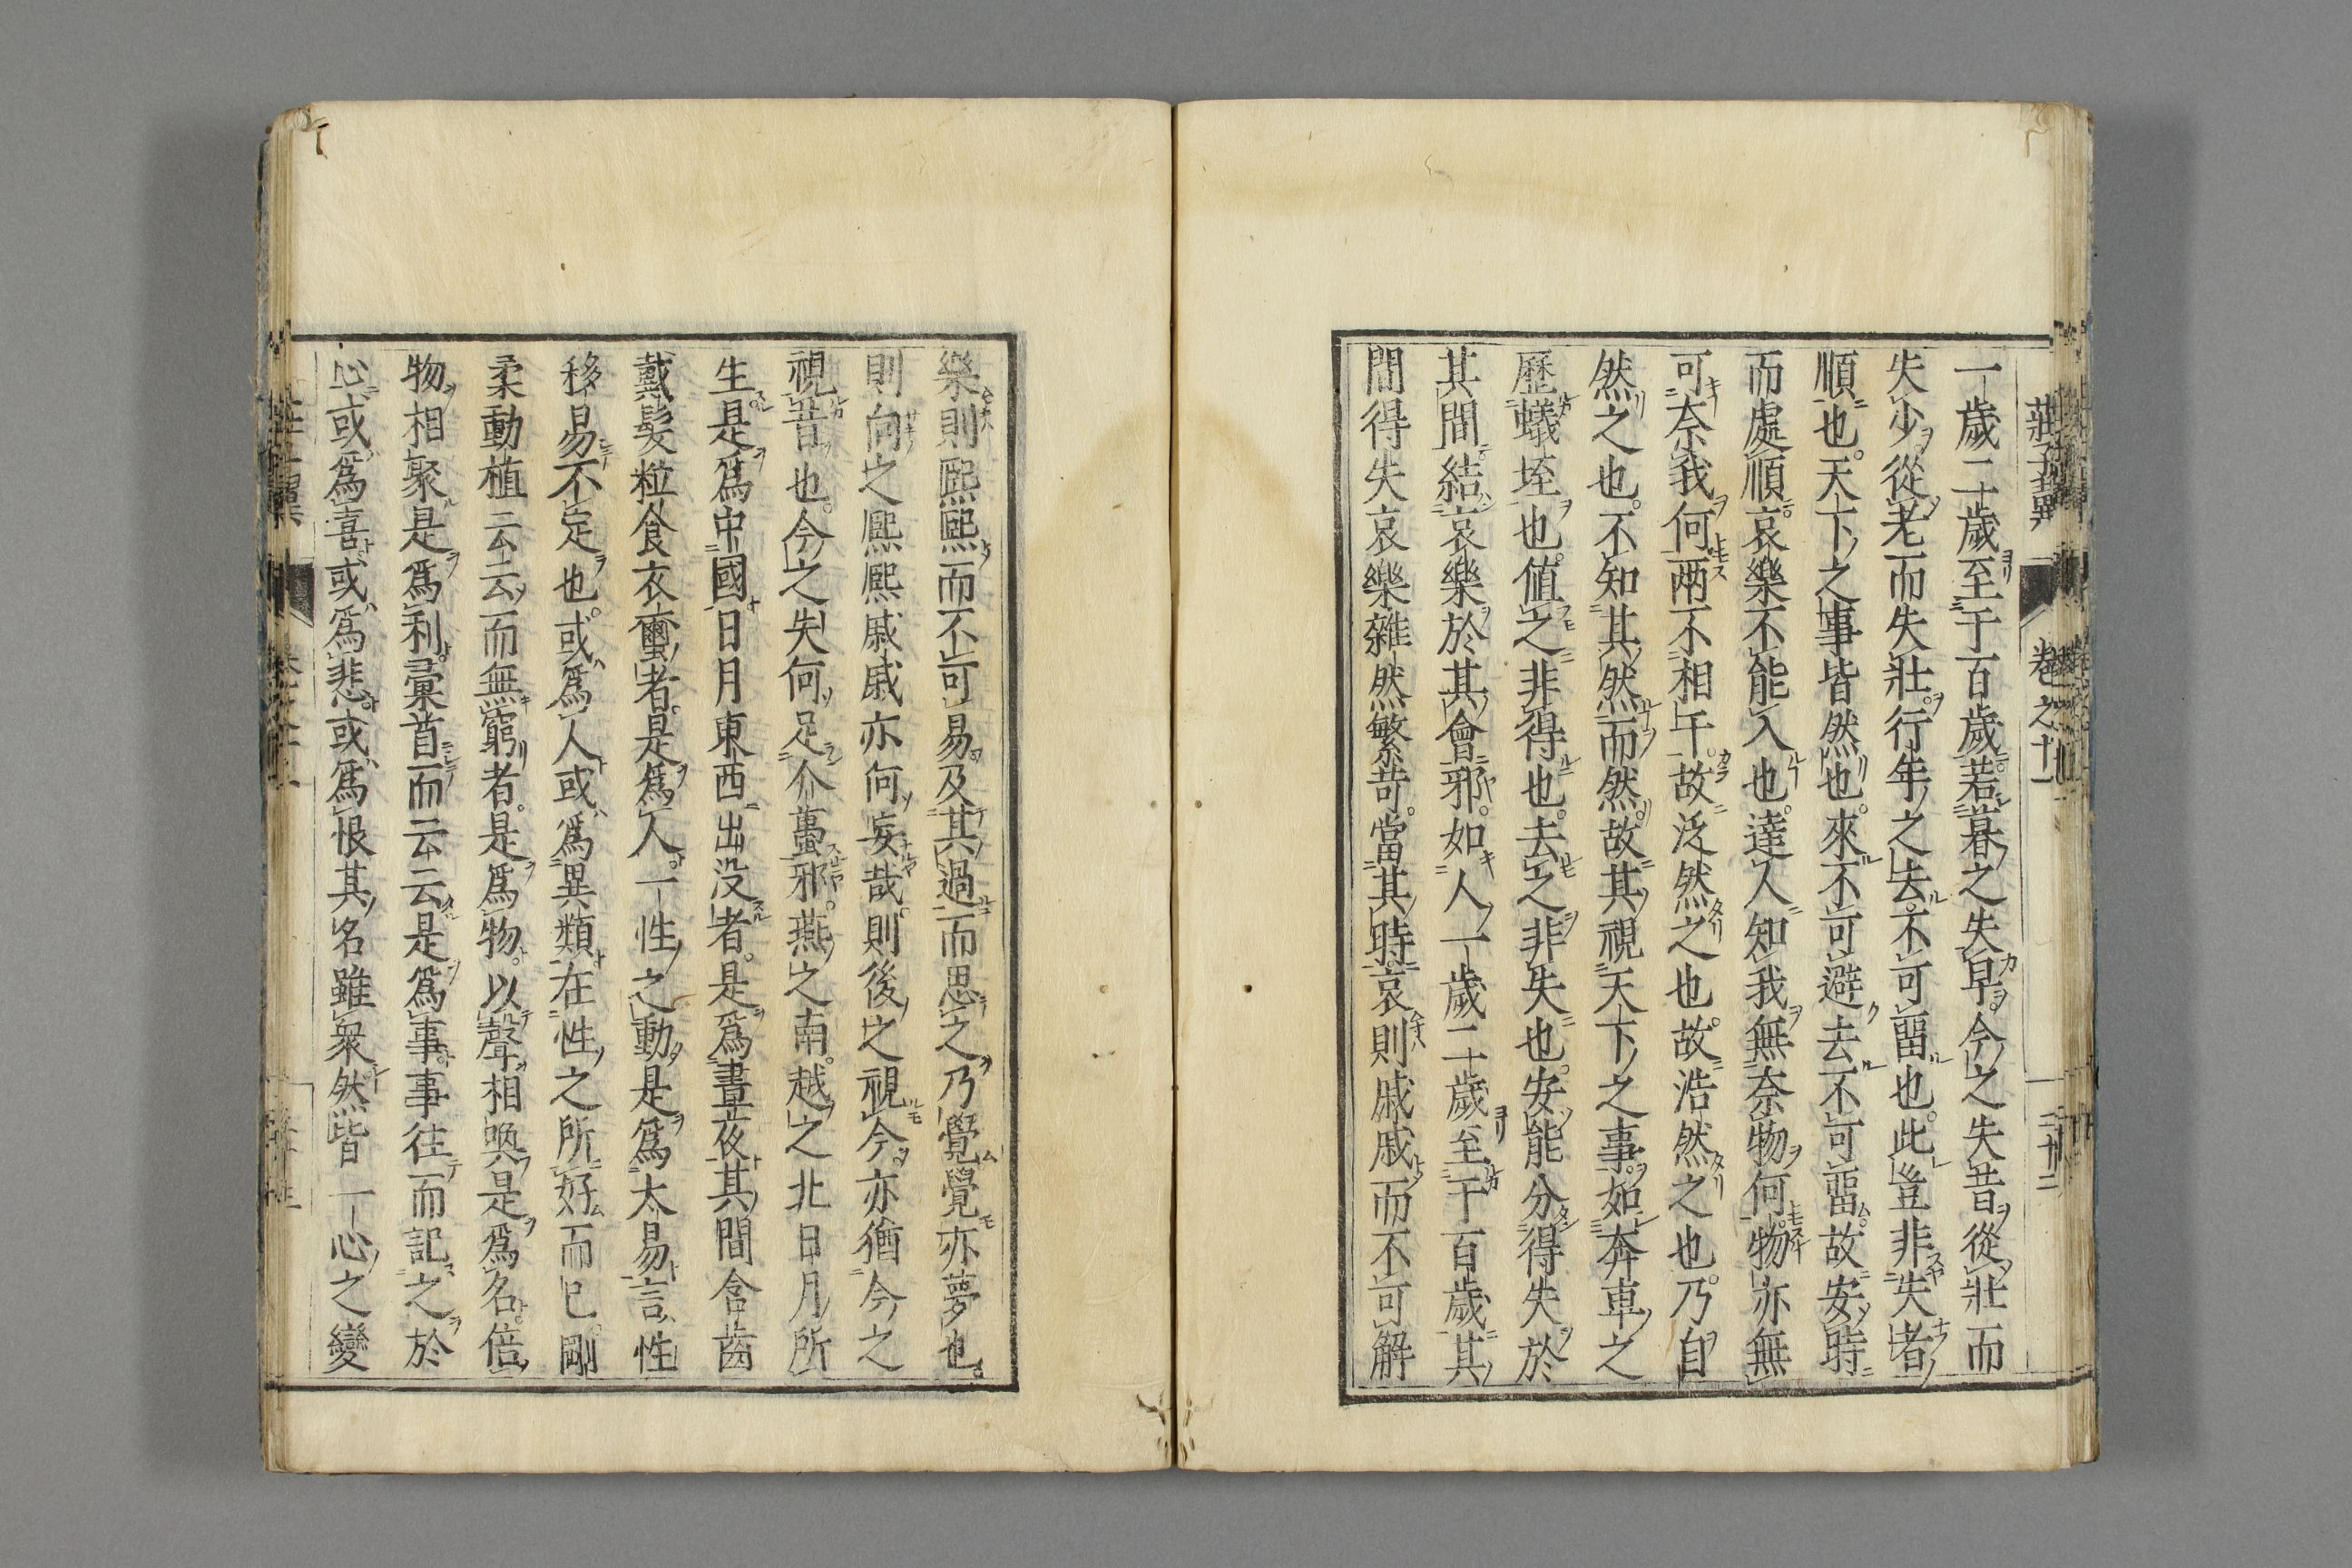 莊子翼 卷之十一 三十二
一歲二十歲至于百歲若暮之失早今之失昔從壯而
失少從老而失壯行年之去不可畱也此豈非失者
順也天下之事皆然也來不可避去不可畱故安時
而處順哀樂不能入也達人知我無奈物何物亦無
可奈我何兩不相干故泛然之也故浩然之也乃自
然之也不知其然而然故其視天下之事如奔車之
歷蟻垤也値之非得也去之非失也安能分得失於
其間結哀樂於其會邪如人一歲二十歲至于百歲其
間得失哀樂雜然繁苛當其時哀則戚戚而不可解
樂則熙熙而不可易及其過而思之乃覺覺亦夢也
則向之熙熙戚戚亦何妄哉則後之視今亦猶今之
視昔也今之失何足介蠆邪燕之南越之北日月所
生是爲中國日月東西出沒者是爲晝夜其間含齒
戴髮粒食衣蠒者是爲人一性之動是爲太易言性
移易不定也或爲人或爲異類在性之所好而已剛
柔動植云云而無窮者是爲物以聲相喚是爲名倍
物相聚是爲利彙首而云云是爲事事往而記之於
心或爲喜或爲悲或爲恨其名雖衆然皆一心之變